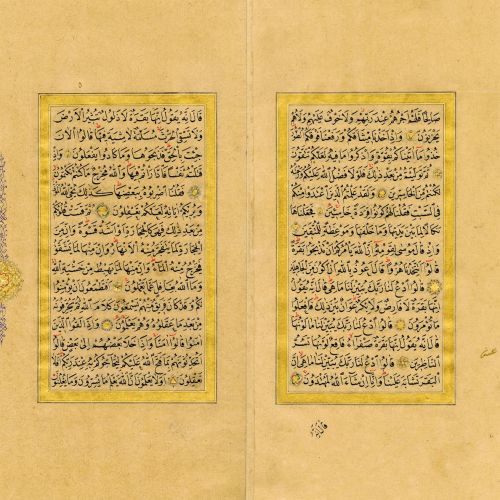 صالحا فلهم اجرهم عند ربهم ولا خوف عليهم ولا هم
يحزنون واذ اخذنا ميثاقكم ورفعنا فوقكم الطور
خذوا ما اتيناكم بقوة واذكروا ما فيه لعلكم تتقون
ثم توليتم من بعد ذلك فلولا فضل الله عليكم ورحمته
لكنتم من الخاسرين ولقد علمتم الذين اعتدوا منكم
في السبت فقلنا لهم كونوا قردة خاسئين فجعلناها
نكالا لما بين يديها وما خلفها وموعظة للمتقين
واذ قال موسى لقومه ان الله يأمركم ان تذبحوا بقرة
قالوا اتتخذنا هزوا قال اعوذ بالله ان اكون من الجاهلين
قالوا ادع لنا ربك يبين لنا ما هي قال انه يقول
انها بقرة لا فارض ولا بكر عوان بين ذلك فافعلوا
ما تؤمرون قالوا ادع لنا ربك يبين لنا ما لونها
قال انه يقول انها بقرة صفراء فاقع لونها تسر
الناظرين قالوا ادع لنا ربك يبين لنا ما هي ان
البقر تشابه علينا وانا ان شاء الله لمهتدون
قال انه
قال انه يقول انها بقرة لا ذلول تثير الارض
ولا تسقي الحرث مسلمة لا شية فيها قالوا الان
جئت بالحق فذبحوها وما كادوا يفعلون واذ
قتلتم نفسا فادارأتم فيها والله مخرج ما كنتم تكتمون
فقلنا اضربوه ببعضها كذلك يحيي الله الموتى
ويريكم اياته لعلكم تعقلون ثم قست قلوبكم
من بعد ذلك فهي كالحجارة او اشد قسوة وان من
الحجارة لما يتفجر منه الانهار وان منها لما يشقق
فيخرج منه الماء وان منها لما يهبط من خشية الله
وما الله بغافل عما تعملون افتطمعون ان يؤمنوا
لكم وقد كان فريق منهم يسمعون كلام الله ثم يحرفونه
من بعد ما عقلوه وهم يعلمون واذا لقوا الذين
امنوا قالوا امنا واذا خلا بعضهم الى بعض قالوا
اتحدثونهم بما فتح الله عليكم ليحاجوكم به عند ربكم افلا
تعقلون اولا يعلمون ان الله يعلم ما يسرون وما يعلنون